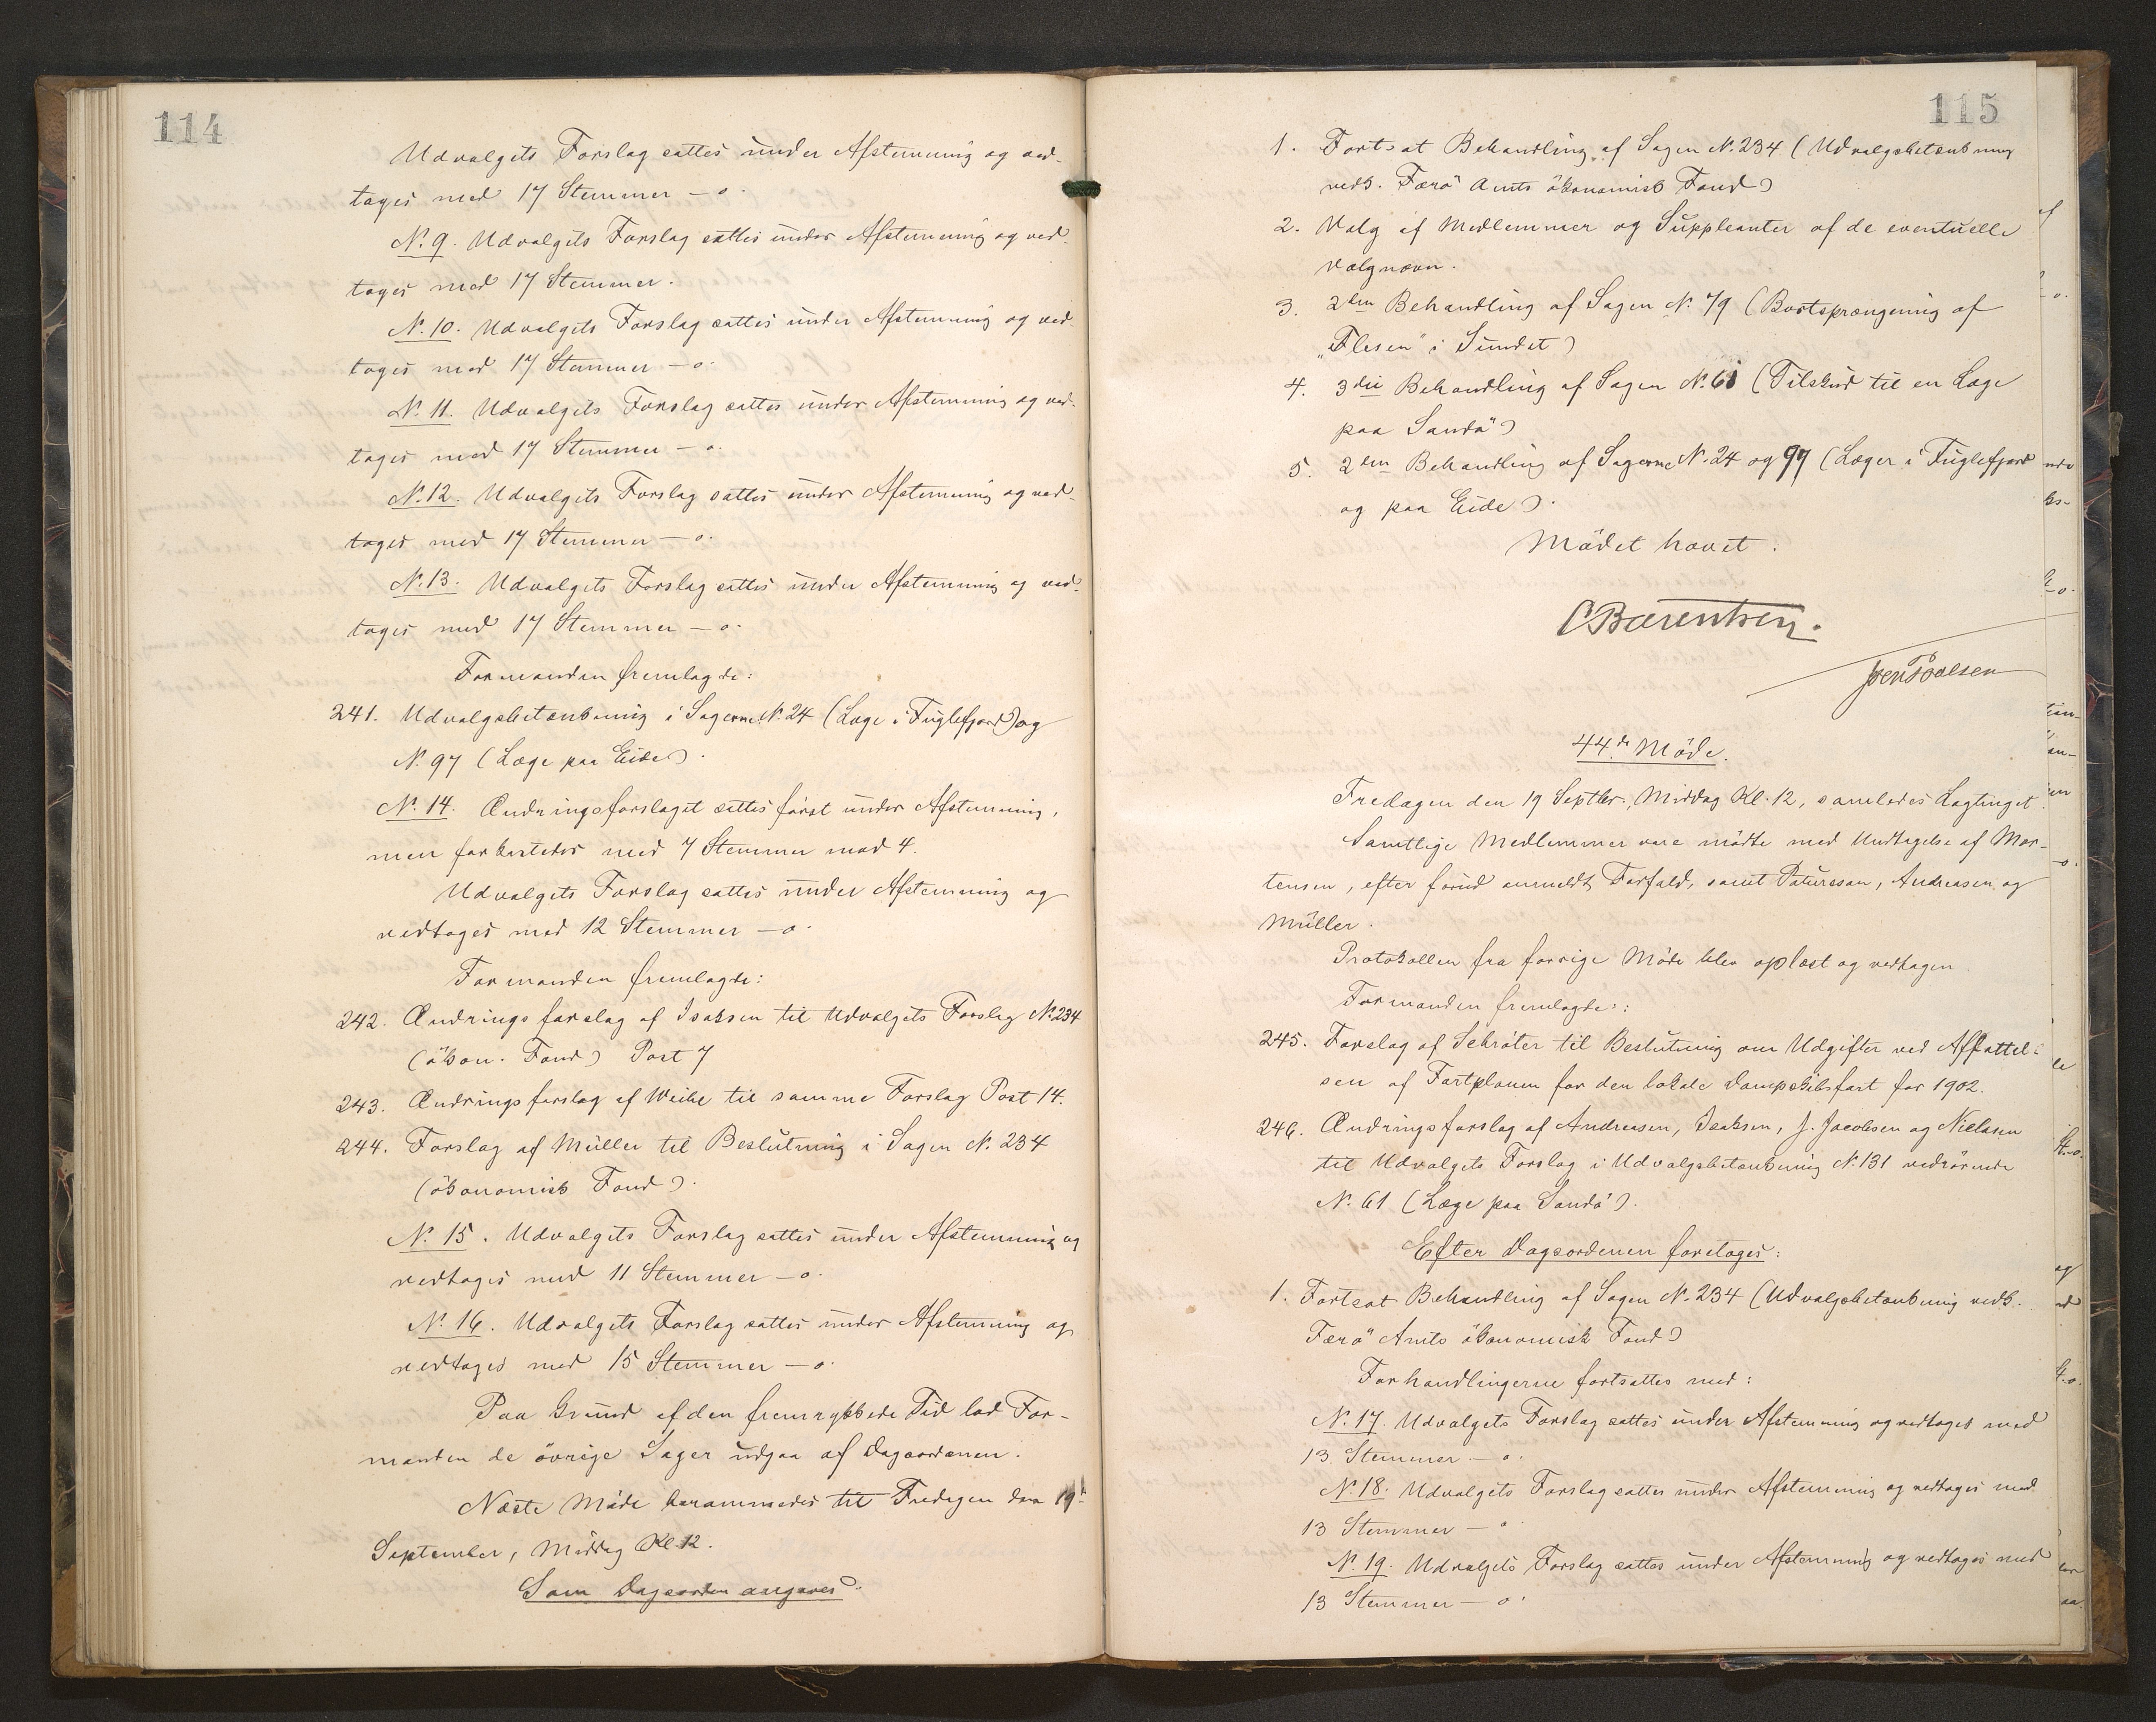 114
Udvalgets Forslag sattes under Afstemning og ved-
toges med 17 Stemmer – o.
N. 9. Udvalgets Forslag sattes under Afstemning og ved-
toges med 17 Stemmer.
N. 10. Udvalgets Forslag sattes under Afstemning og ved-
toges med 17 Stemmer – o.
N. 11. Udvalgets Forslag sattes under Afstemning og ved-
toges med 17 Stemmer – o.
N. 12. Udvalgets Forslag sattes under Afstemning og ved-
toges med 17 Stemmer – o.
N. 13. Udvalgets Forslag sattes under Afstemning og ved-
toges med 17 Stemmer – o.
Formanden fremlagde:
241. Udvalgsbetænkning i Sagerne N. 24 (Læge i Fuglefjord) og
N. 97 (Læge paa Eide).
N. 14. Ændringsforslaget sattes först under Afstemning,
men forkastedes med 7 Stemmer mod 4.
Udvalgets Forslag sattes under Afstemning og
vedtoges med 12 Stemmer – o.
Formanden fremlagde:
242. Ændringsforslag af Isaksen til Udvalgets Forslag N. 234
(ökon. Fond) Post 7
243. Ændringsforslag af Weihe til samme Forslag Post 14.
244. Forslag af Müller til Beslutning i Sagen N. 234
(ökonomisk Fond).
N. 15. Udvalgets Forslag sattes under Afstemning og
vedtoges med 11 Stemmer – o.
N. 16. Udvalgets Forslag sattes under Afstemning og
vedtoges med 15 Stemmer – o.
Paa Grund af den fremrykkede Tid lod For-
manden de övrige Sager udgaa af Dagsordenen.
Næste Möde berammedes til Fredagen den 19d.
September, Middag Kl. 12.
Som Dagsorden angaves:
115
1. Fortsat Behandling af Sagen N. 234 (Udvalgsbetænkning
vedk. Færö Amts ökonomisk Fond)
2. Valg af Medlemmer og Suppleanter af de eventuelle
Valgnævn.
3. 2den Behandling af Sagen N. 79 (Bortsprængning af
„Flesen“ i Sundet)
4. 3die Behandling af Sagen N. 61 (Tilskud til en Læge
paa Sandö)
5. 2den Behandling af Sagerne N. 24 og 97 (Læger i Fuglefjord
og paa Eide).
Mödet hævet.
C Bærentsen.
Joen Poulsen
44de Möde.
Fredagen den 19 Septbr. Middag Kl. 12, samledes Lagtinget.
Samtlige Medlemmer vare mödte med Undtagelse af Mor-
tensen, efter forud anmeldt Forfald, samt Patursson, Andreasen og
Müller.
Protokollen fra forrige Möde blev oplæst og vedtagen.
Formanden fremlagde:
245. Forslag af Schröter til Beslutning om Udgifter ved Affattel-
sen af Fartplanen for den lokale Dampskibsfart for 1902.
246. Ændringsforslag af Andreasen, Isaksen, J. Jacobsen og Nielsen
til Udvalgets Forslag i Udvalgsbetænkning N. 131 vedrörende
N. 61 (Læge paa Sandö).
Efter Dagsordenen foretoges:
1. Fortsat Behandling af Sagen N. 234 (Udvalgsbetænkning vedk.
Færö Amts ökonomisk Fond)
Forhandlingerne fortsattes med:
N. 17. Udvalgets Forslag sattes under Afstemning og vedtoges med
13 Stemmer – o.
N. 18. Udvalgets Forslag sattes under Afstemning og vedtoges med
13 Stemmer – o.
N. 19. Udvalgets Forslag sattes under Afstemning og vedtoges med
13 Stemmer – o.